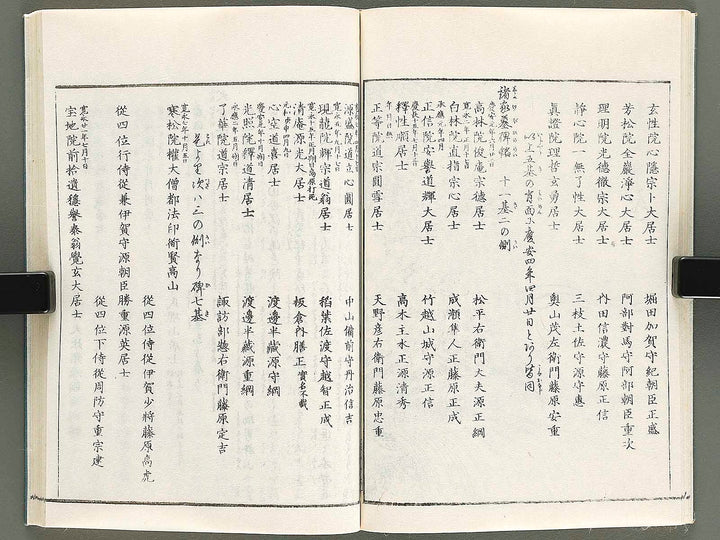 玄性院心隠宗卜大居士 堀田加賀守紀朝臣正盛
芳松院全巖淨心大居士 阿部對馬守阿部朝臣重次
理明院光德徹宗大居士 内田信濃守藤原正信
靜心院一無了性大居士 三枝土佐守源守惠
眞證院理哲玄勇居士 奥山茂左衛門藤原安重
以上五基の背面に慶安四年四月廿日とあり皆同
諸家墓碑 十一基二の側
高林院俊庵宗德居士 松平右衛門大夫源正綱
白林院直指宗心居士 成瀬隼人正藤原正成
正信院安譽道輝大居士 竹越山城守源正信
釋性順居士 高木主水正源清秀
正等院道宗圓雪居士 天野彦右衛門藤原忠重
源盛院道心圓居士 中山備前守丹治信吉
現龍院輝宗道翁居士 稻葉佐渡守越智正成
清庵源光大居士 板倉内膳正實名不載
心空道喜居士 渡邊半藏源守綱
光照院釋道清居士 渡邊半藏源重綱
了華院道宗居士 諏訪部惣右衛門藤原定吉
並より次ハ三の側なり碑七基
寛永七年十月五日
寒松院權大僧都法印衜賢高山
從四位侍從伊賀少將藤原高虎
從四位行侍從兼伊賀守源朝臣勝重源英居士
從四位下侍從周防守重宗建
寛永廿一年七月十日
宝地院前拾遺穏譽泰翁覺玄大居士